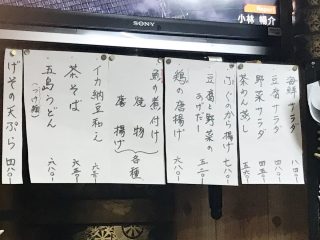 小林 陽介
SONY
海鮮サラダ 八四〇-
豆腐サラダ 四五〇-
野菜サラダ 四五〇-
茶わん蒸し 五六〇-
ふぐのから揚げ 七八〇-
豆腐と野菜の
あげだし 五二〇-
鶏の唐揚げ 六八〇-
魚の煮付け
焼物
唐揚げ
各種
イカ納豆和え 六五〇-
茶そば 六五〇-
五島うどん 六八〇-
(つけ麺)
げその天ぷら 四八〇-